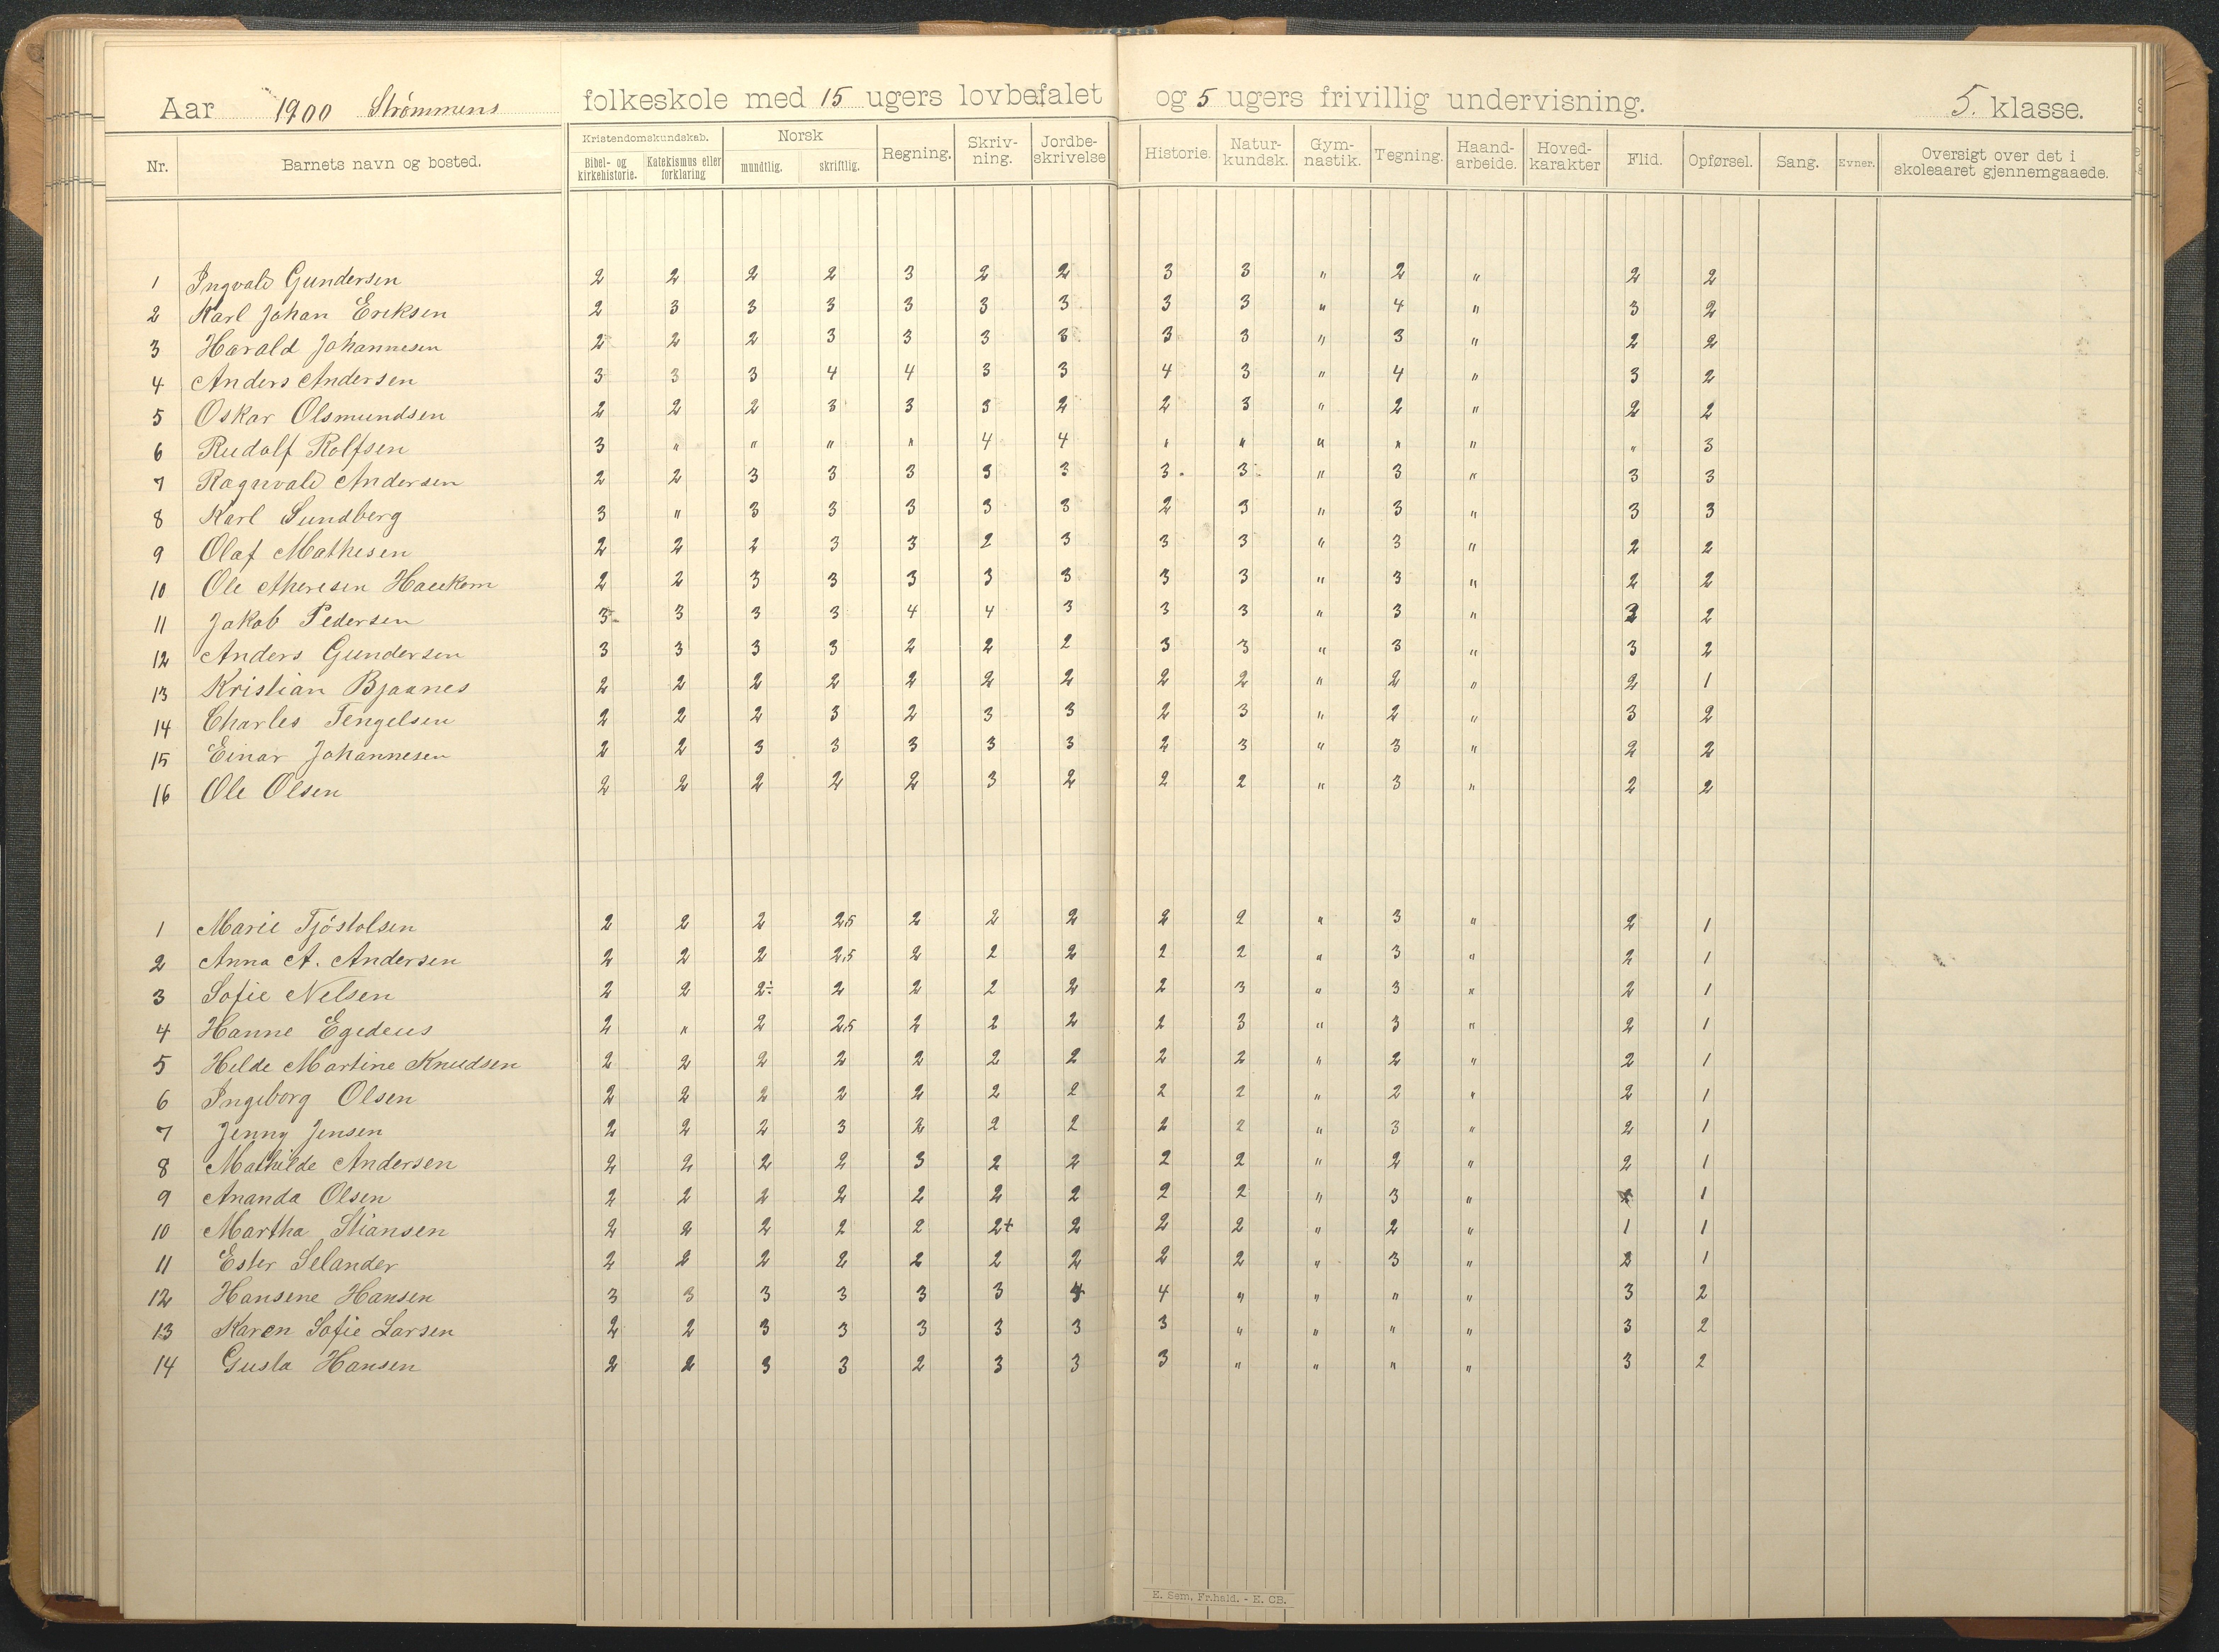 Aar 1900 Strømmens folkeskole med 15 ugers lovbefalet og 5 ugers frivillig undervisning. 5. klasse.
Nr. Barnets navn og bosted. Kristendomskundskab. Bibel- og kirkehistorie. Katekismus eller forklaring Norsk mundtlig. skriftlig. Regning. Skriv-ning. Jordbe-skrivelse Historie. Natur-kundsk. Gym-nastik. Tegning. Haand-arbeide. Hoved-karakter Flid. Opførsel. Sang. Evner. Oversigt over det i skoleaaret gjennemgaaede.
1 Ingvald Gundersen 2 2 2 2 3 2 2 3 3 " 2 " 2 2
2 Karl Johan Eriksen 2 3 3 3 3 3 3 3 3 " 4 " 3 2
3 Harald Johannesen 2 2 2 3 3 3 3 3 3 " 3 " 2 2
4 Anders Andersen 3 3 3 4 4 3 3 4 3 " 4 " 3 2
5 Oskar Olsmundsen 2 2 2 3 3 3 2 2 3 " 2 " 2 2
6 Rudolf Rolfsen 3 " " " " 4 4 " " " " " " 3
7 Ragnvald Andersen 2 2 3 3 3 3 3 3 3 " 3 " 3 3
8 Karl Sundberg 3 " 3 3 3 3 3 2 3 " 3 " 3 3
9 Olaf Mathisen 2 2 2 3 3 2 3 3 3 " 3 " 2 2
10 Ole 2 2 3 3 3 3 3 3 3 " 3 " 2 2
11 Jakob Pedersen 3 3 3 3 4 4 3 3 3 " 3 " 2
12 Anders Gundersen 3 3 3 3 2 2 2 3 3 " 3 " 3 2
13 Kristian Bjaanes 2 2 2 2 2 2 2 2 2 " 2 " 2 1
14 Charles Tengelsen 2 2 2 3 2 3 3 2 3 " 2 " 3 2
15 Einar Johannesen 2 2 3 3 3 3 3 2 3 " 3 " 2 2
16 Ole Olsen 2 2 2 2 2 3 2 2 2 " 3 " 2 2
1 Marie Tjöstolsen 2 2 2 2,5 2 2 2 2 2 " 3 " 2 1
2 Anna A. Andersen 2 2 2 2,5 2 2 2 2 2 " 3 " 2 1
3 Sofie Nelsen 2 2 2÷ 2 2 2 2 2 3 " 3 " 2 1
4 Hanne Egedeus 2 " 2 2,5 2 2 2 2 3 " 3 " 2 1
5 Helde Martine Knudsen 2 2 2 2 2 2 2 2 2 " 2 " 2 1
6 Ingeborg Olsen 2 2 2 2 2 2 2 2 2 " 2 " 2 1
7 Jenny Jensen 2 2 2 3 2 2 2 2 2 " 3 " 2 1
8 Mathilde Andersen 2 2 2 2 3 2 2 2 2 " 2 " 2 1
9 Ananda Olsen 2 2 2 2 2 2 2 2 2 " 3 " 1
10 Martha Stiansen 2 2 2 2 2 2+ 2 2 2 " 2 " 1 1
11 Ester Selander 2 2 2 2 2 2 2 2 2 " 3 " 2 1
12 Hansene Hansen 3 3 3 3 3 3 4 4 " " " " 3 2
13 Karen Sofie Larsen 2 2 3 3 3 3 3 3 " " " " 3 2
14 Gusta Hansen 2 2 3 3 2 3 3 3 " " " " 3 2
E. Sem, Fr.hald. - E. CB.